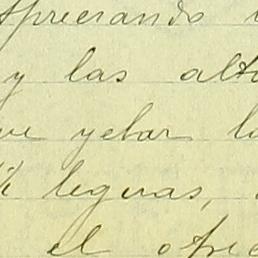 apreciando
y las alt
yelar l
leguas,
el ofre